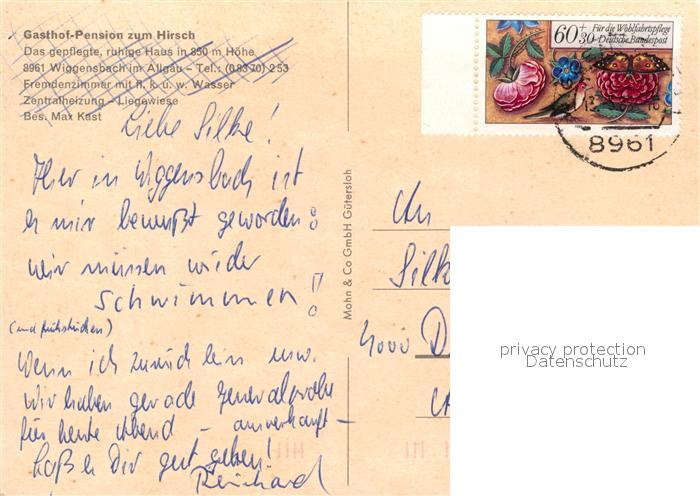 Gasthof-Pension zum Hirsch
Das gepflegte, ruhige Haus in 850 m Höhe
8961 Wiggensbach im Allgäu – Tel.: (0 83 70) 2 53
Fremdenzimmer mit fl. k. u. w. Wasser
Zentralheizung – Liegewiese
Bes. Max Kast
Liebe Silke!
Hier in Wiggensbach ist
es mir bewußt geworden:
wir müssen wieder
schwimmen!
(und frühstücken)
Wenn ich zurück bin usw.
Wir haben gerade Generalprobe
für heute Abend – ausverkauft –
Laß es Dir gut gehen!
Reinhard
Mohn & Co GmbH Gütersloh
60+30 Für die Wohlfahrtspflege
Deutsche Bundespost
8961
An
Silke
4000 D
privacy protection
Datenschutz